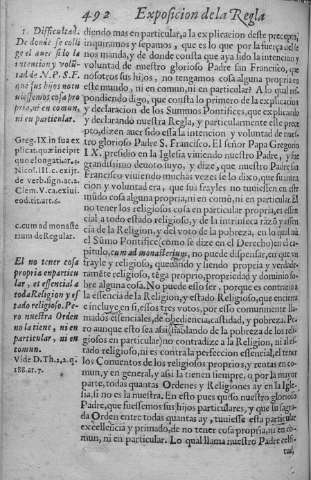 492 Exposicion de la Regla
1. Dificultad.
De donde se coli
ge el auer sido la
intencion y volũ-
tad de N. P. S. F.
que sus hijos no tu
uiessen cosa pro
pria, ni en comun,
ni en particular.
Greg. IX. in sua ex
plicat. quæ incipit
Nicol. III. c. exijt.
de verb. sign. ar. 2.
Clem. V. ca. exiui
eod. tit. art. 6.
c. cum ad monaste
rium de Regular.
El no tener cosa
propria en particu
lar, es essencial a
toda Religion y es
tado religioso. Pe-
ro nuestra Orden
no la tiene, ni en
particular, ni en
comun.
Vide D. Th. 2. 2. q.
188. ar. 7.
diendo mas en particular, a la explicacion deste precepto,
inquiramos y sepamos, que es lo que por la fuerça del se
nos manda, y de donde consta que aya sido la intencion y
voluntad de nuestro glorioso Padre san Francisco, que
nosotros sus hijos, no tengamos cosa alguna propria en
este mundo, ni en comun, ni en particular? A lo qual res-
pondiendo digo, que consta lo primero de la explicacion
y declaracion de los Summos Pontifices, que explicando
y declarando nuestra Regla, y particularmente este prece
pto, dizen auer sido essa la intencion y voluntad de nues-
tro glorioso Padre S. Francisco. El señor Papa Gregorio
IX. presidio en la Iglesia viniendo nuestro Padre, y fue
grandissimo deuoto suyo, y dize, que nuestro Padre san
Francisco viuiendo muchas vezes se lo dixo, que su inten
cion y voluntad era, que sus frayles no tuuiessen en este
mũdo cosa alguna propria, ni en comũ, ni en particular. El
no tener los religiosos cosa en particular propria, es essen
cial a todo estado religioso, y de la intrinseca razõ y essen
cia de la Religion, y del voto de la pobreza, en lo qual ni
el Sũmo Põtifice (como se dize en el Derecho) en el ca-
pitulo, cum ad monasterium, no puede dispensar, en que vn
frayle y religioso, quedando y siendo propria y verdade-
ramẽte religioso, tẽga proprio, propriedad y dominio so-
bre alguna cosa. No puede esso ser, porque es contrario a
la essencia de la Religion, y estado Religioso, que encierra
e incluye en si, essos tres votos, por esso comunmente lla-
mados essenciales, de obediencia, castidad, y pobreza. Pe-
ro aunque esto sea assi (hablando de la pobreza de los reli-
giosos en particular) no contradize a la Religion, ni al es-
tado religioso, ni es contra la perfeccion essencial, el tener
los Conuentos de los religiosos proprios, y rentas en co-
mun, y en general, y assi la tienen siempre, o por la mayor
parte, todas quantas Ordenes y Religiones ay en la Igle-
sia, si no es la nuestra. En esto pues quiso nuestro glorioso
Padre, que fuessemos sus hijos particulares, y que su sagra-
da Orden entre todas quantas ay, tuuiesse esta particular
excellencia y primado, de no tener cosa propria, ni en co-
mun, ni en particular. Lo qual llama nuestro Padre celsi-
tud,